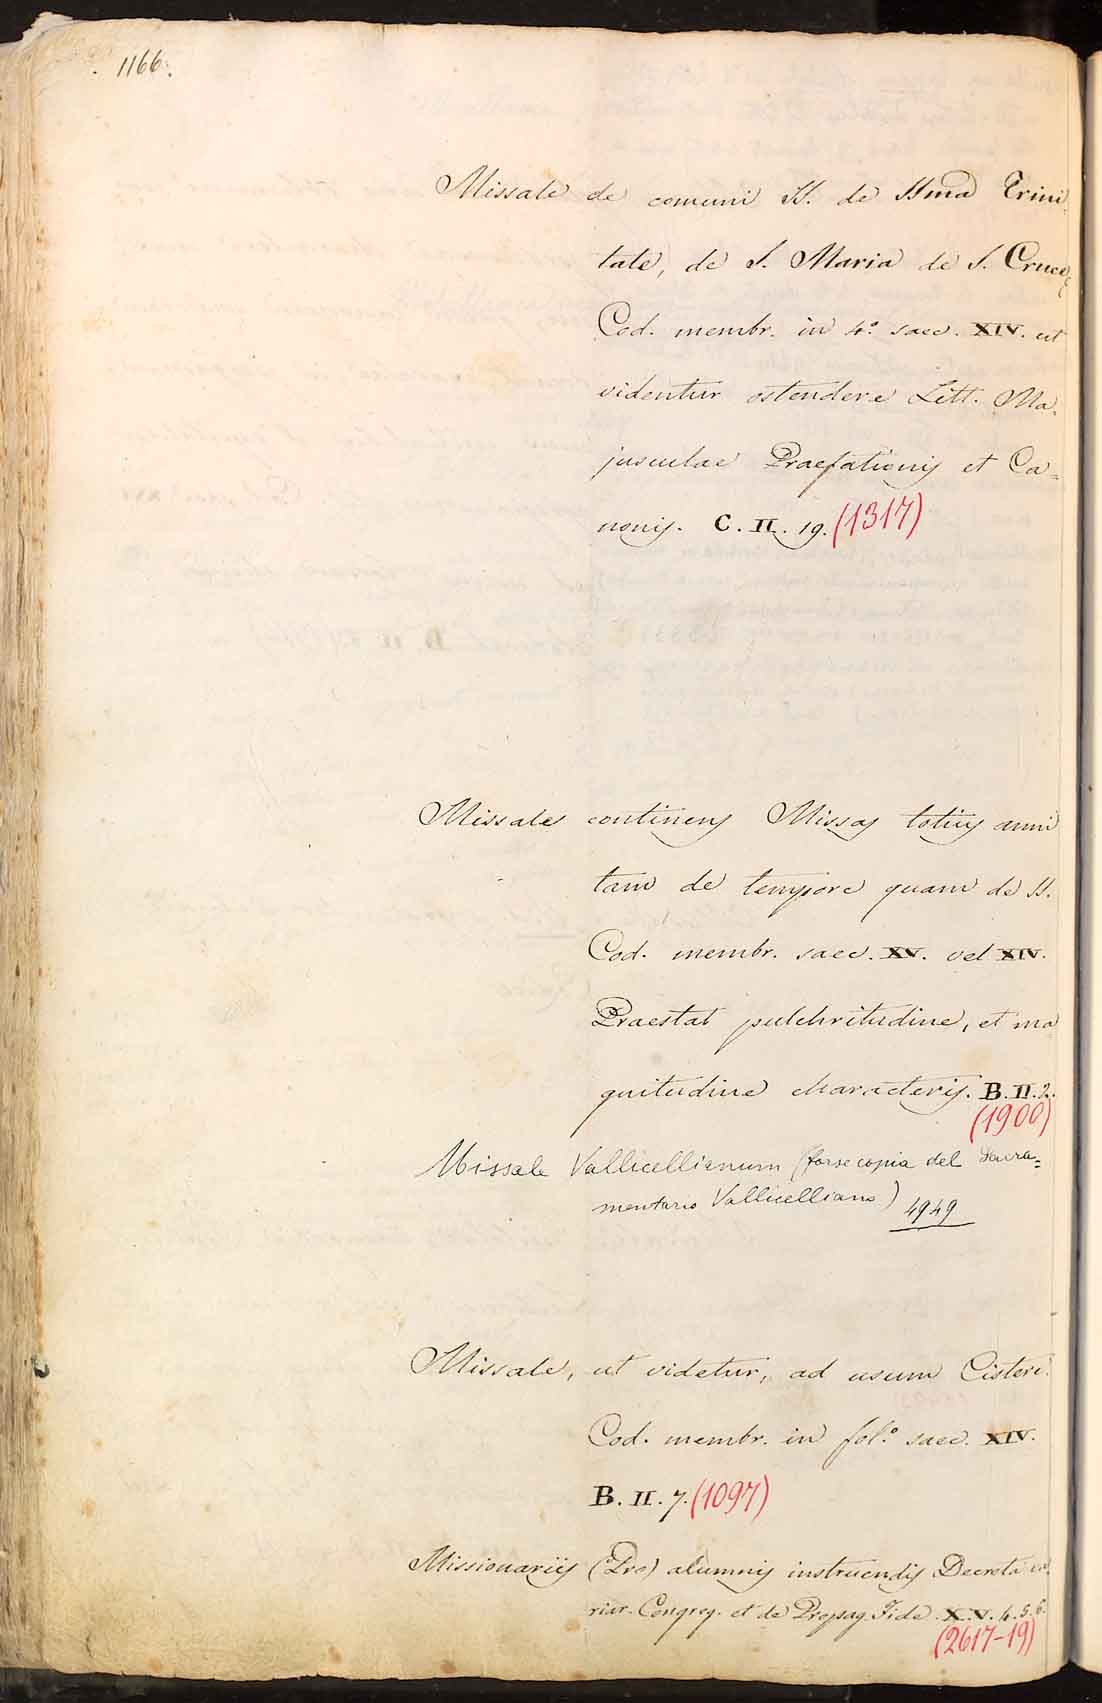 1166.
Missale de comuni SS. de SSma Trini
tate, de S. Maria de S. Cruce,
Cod. membr. in 4.º saec. XIV. ut
videntur ostendere Litt. Ma.
jusculae Praefationis et Ca=
nonis. C. II. 19. (1317)
Missale continens Missas totius anni
tam de tempore quam de SS.
Cod. membr. saec. XV. vel XIV.
Praestat pulchritudine, et ma
gnitudine characteris. B. II. 2.
(1900)
Missale Vallicellianum (forse copia del Sacra=
mentario Vallicelliano) 4949
Missale, ut videtur, ad usum Cisterc.
Cod. membr. in fol.º saec. XIV.
B. II. 7. (1097)
Missionariis (Pro) alumnis instruendis Decreta va
riar. Congreg. et de Propag. Fide. X. V. 4. 5. 6.
(2617-19)